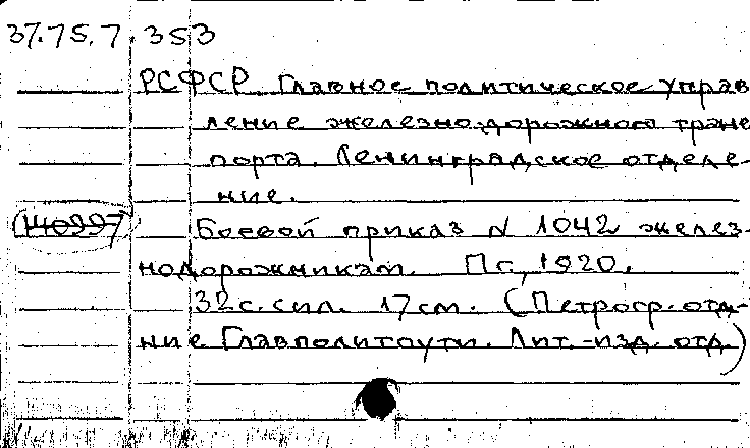 37.75.7.353
РСФСР Главное политическое управ
ление железнодорожного транс
порта. Ленинградское отделе-
ние.
140997 Боевой приказ N 1042 желез-
нодорожникам. Пг., 1920.
32 с. сил. 17 см. (Петрогр. отд-
ние Главполитпути. Лит.-изд. отд.)